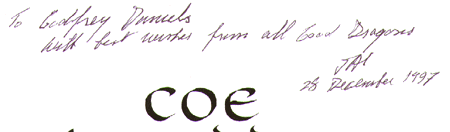 To Godfrey Daniels
with best wishes from all Good Dragons
28 December 1997
COE